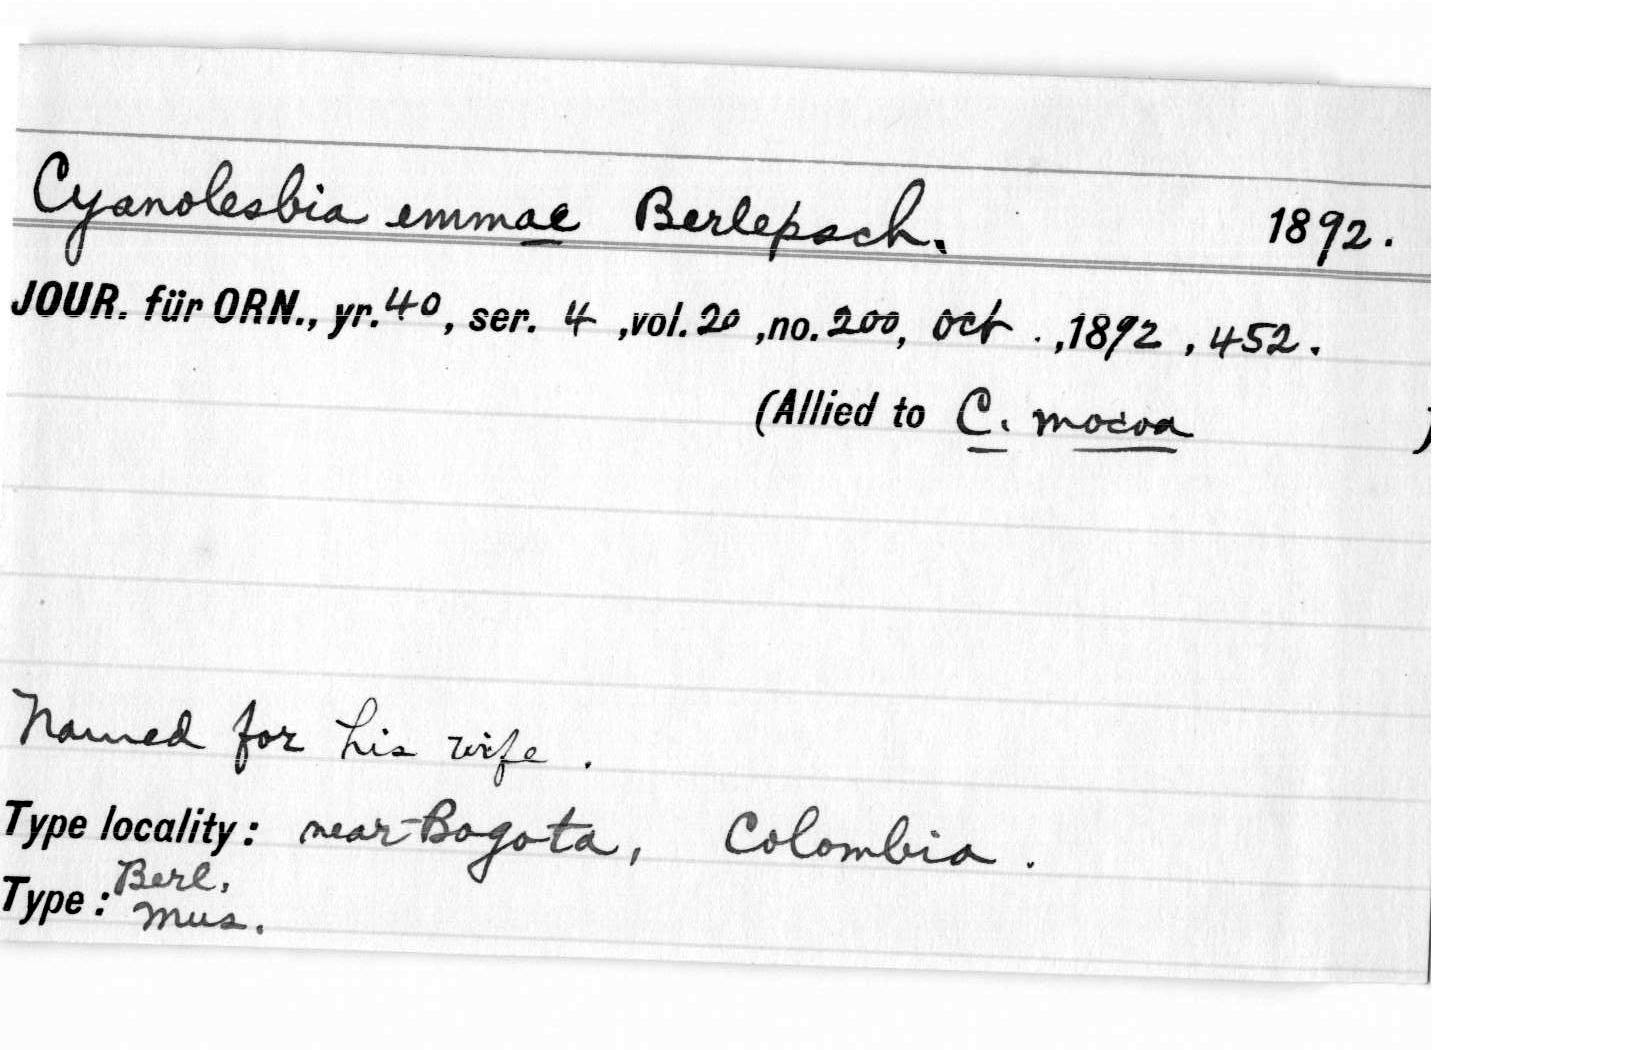 Cyanolesbia emmae Berlepsch. 1892.
JOUR. für ORN., yr. 40, ser. 4 ,vol. 20 ,no. 200, Oct . ,1892 , 452.
(Allied to C. mocoa )
Named for his wife .
Type locality: near Bogota, Colombia .
Type: Berl.
Mus.